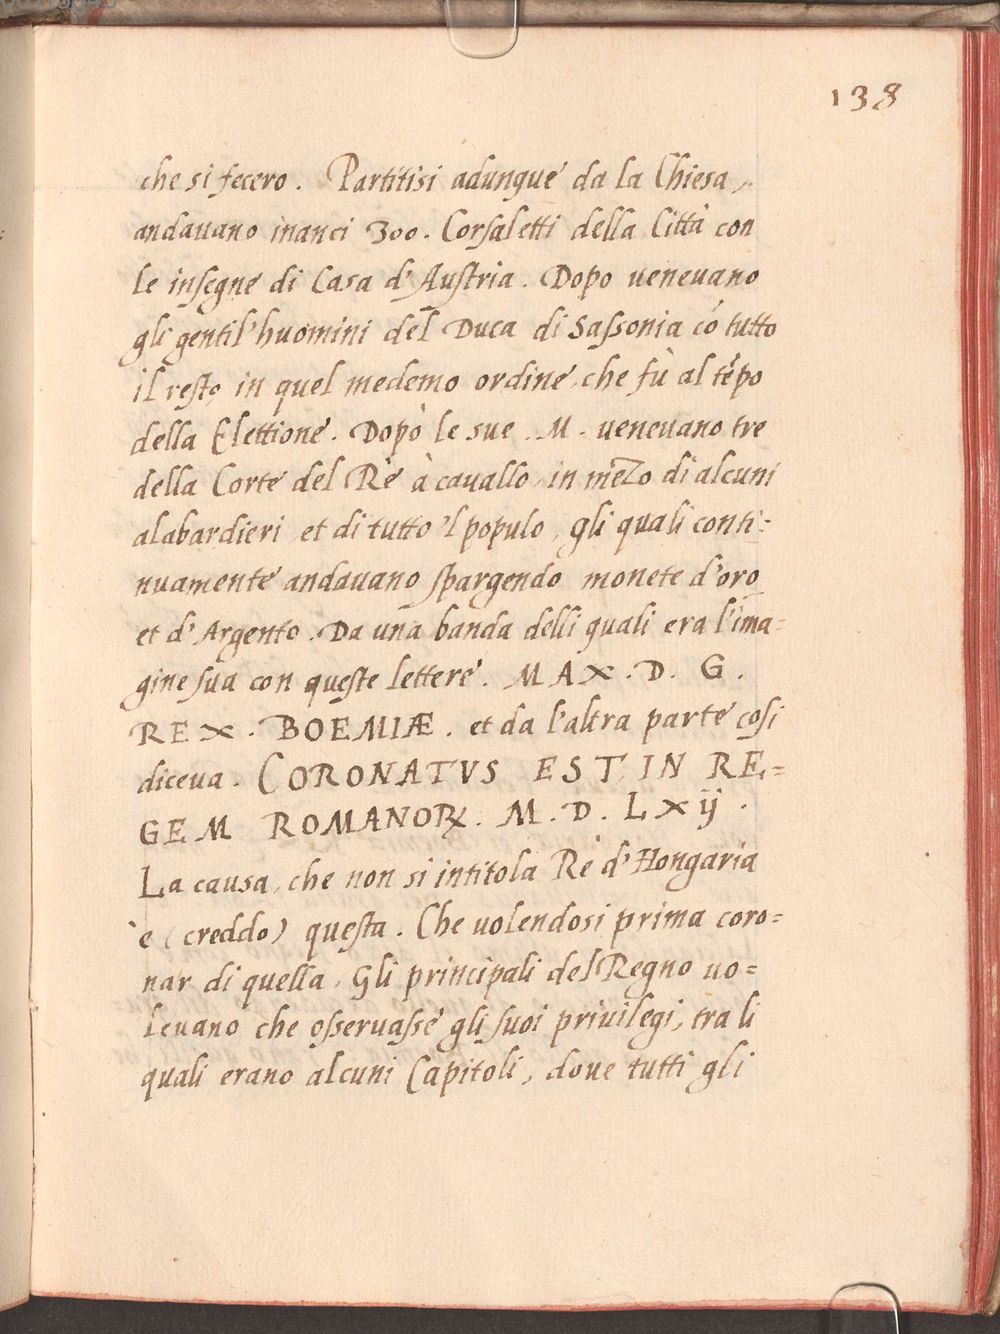 138
che si fecero. Partitisi adunque da la Chiesa,
andauano inanci 300. Corsaletti della Città con
le insegne di Casa d'Austria. Dopo ueneuano
gli gentil'huomini del Duca di Sassonia cō tutto
il resto, in quel medemo ordine, che fù al tēpo
della Elettione. Dopò le sue .M. ueneuano tre
della Corte del Rè à cauallo, in mezo di alcuni
alabardieri et di tutto 'l populo, gli quali conti=
nuamente andauano spargendo monete d'oro
et d'Argento. Da una banda delli quali era l'ima=
gine sua con queste lettere. MAX. D. G.
REX. BOEMIÆ. et da l'altra parte cosi
diceua. CORONATVS EST IN RE=
GEM ROMANOꝜ. M. D. LXij.
La causa, che non si intitola Rè d'Hongaria
è (creddo) questa. Che uolendosi prima coro=
nar di quella, Gli principali del Regno uo=
leuano che osseruasse gli suoi priuilegi, tra li
quali erano alcuni Capitoli, doue tutti gli